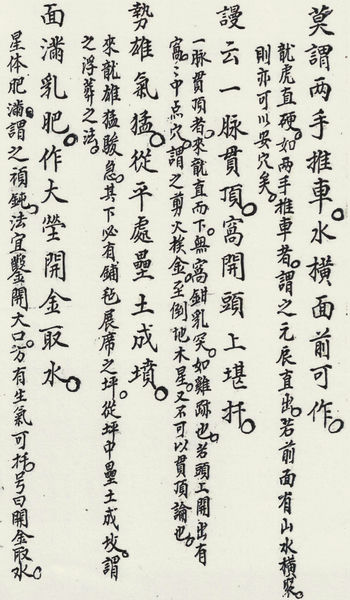 莫謂两手推車。水橫面前可作。
龍虎直硬。如两手推車者。謂之元辰直出。若前面有山水橫聚。
則亦可以安穴矣。
謾云一脉貫頂。窩開頭上堪扦。
一脉貫頂者。來龍直而下。無窩鉗乳突。如雞跡也。若頭上開出有
窩〻中点穴。謂之剪火挨金。至倒地木星。又不可以貫頂論也。
勢雄氣猛。從平處壘土成墳。
來龍雄猛駿急。其下必有鋪毡展席之坪。從坪中壘土成坟。謂
之浮葬之法。
面滿乳肥。作大塋開金取水。
星体肥滿。謂之頑鈍。法宜鑿開大口。方有生氣可扦。号曰開金取水。